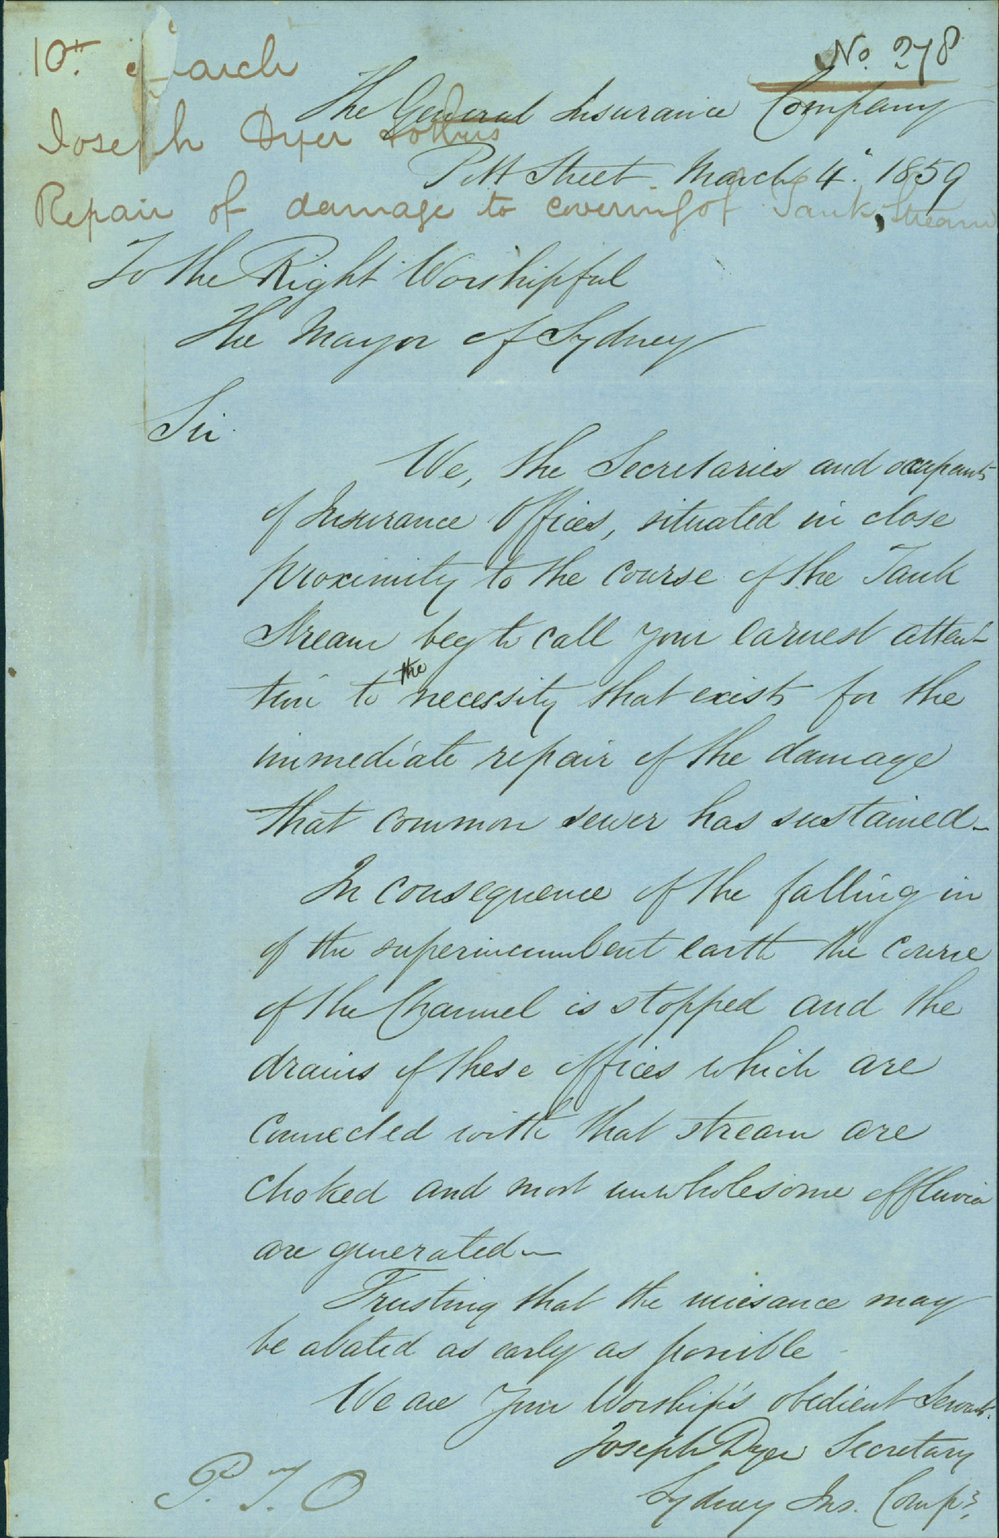 No. 278
10th March
Joseph Dyer & others
Repair of damage to covering of Tank Stream
The General Insurance Company
Pitt Street March 4th 1859
To the Right Worshipful
The Mayor of Sydney
Sir
We, the Secretaries and occupants
of Insurance Offices, situated in close
proximity to the course of the Tank
Stream beg to call your earnest atten-
tion to the necessity that exists for the
immediate repair of the damage
that common sewer has sustained—
In consequence of the falling in
of the superincumbent earth the course
of the Channel is stopped and the
drains of these offices which are
connected with that stream are
choked and most unwholesome effluvia
are generated—
Trusting that the nuisance may
be abated as early as possible
We are Your Worship's obedient Servts.
Joseph Dyer Secretary
Sydney Ins. Compy.
P. T. O